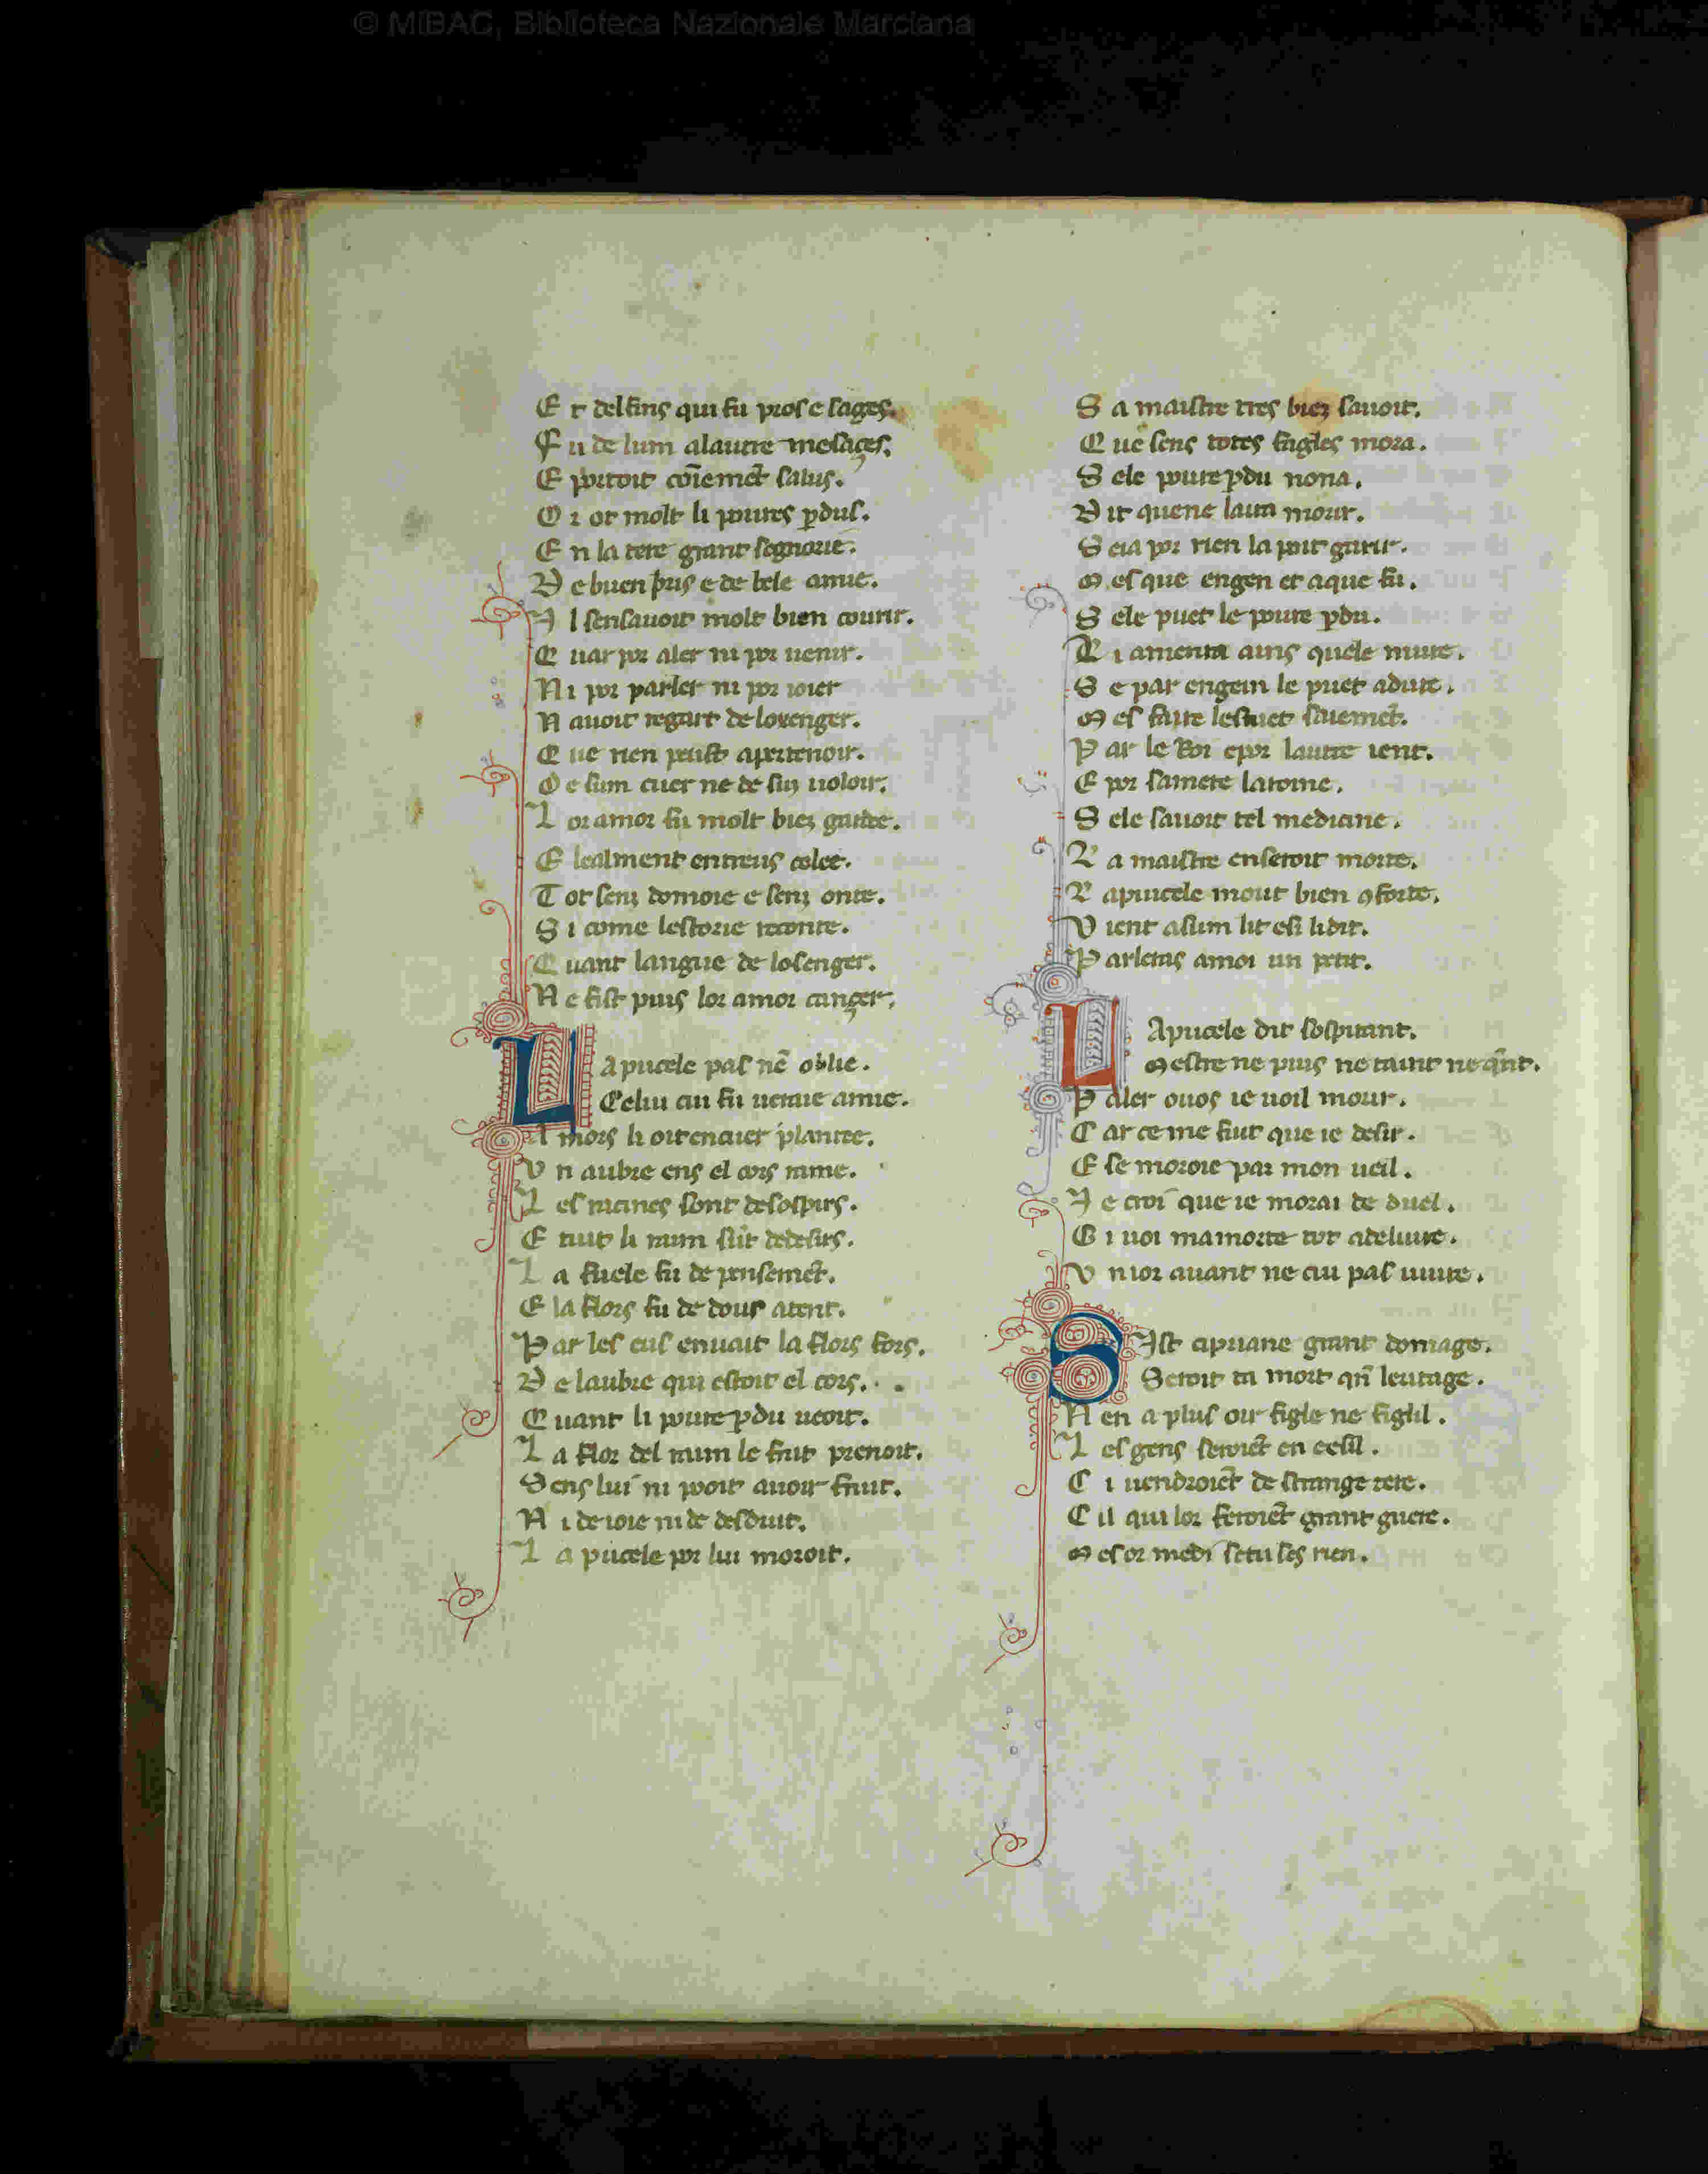 © MiBAC, Biblioteca Nazionale Marciana
E t delfins qui fu pros e sages.
F u de lum alautre mesages.
E portoit coīemēt salus.
O i ot molt li poures ꝑdus.
E n la tere grant segnorie.
D e buen pris e de bele amie.
I l sensauoit molt bien courir.
Q uar por aler ni por uenir.
N i por parler ni por ioier
N auoit regart de loxenger.
Q ue rien peust apertenoir.
D e sum cuer ne de suz uoloir.
L or amor fu molt biez gardee.
E lealment entreus celee.
T ot senz domoie e senz onte.
S i come lestorie reconte.
Q uant langue de losenger.
N e fist puis lor amor canger.
L a pucele pas nē oblie.
Celui cui fu ueraie amie.
A mors li oit encuer plantee.
V n aubre ens el cors rame.
L es racines sont desospirs.
E tuit li raim sūt dedesirs.
L a fuele fu de pensemēt.
E la flors fu de dous atent.
P ar les euls enuait la flors fors.
D e laubre qui estoit el cors.
Q uant li poure ꝑdu ueoit.
L a flor del raim le fruit prenoit.
S ens lui ni poit auoir fruit.
N i de ioie ni de desduit.
L a pucele por lui moroit.
S a maistre tres biez sauoit.
Q ue sens totes fagles mora.
S ele poure ꝑdu nona.
D it quene laira morir.
S eia por rien la puit garir.
M es que engen et aque fu.
S ele puet le poure ꝑdu.
L i amenra ains quele muire.
S e par engein le puet aduire.
M es faire lestuet sauemēt.
P ar le Roi epor lautre ient.
E por samere laroine.
S ele sauoit tel medicine.
L a maistre enseroit morte.
L apucele mout bien ꝯforte.
V ient asum lit esi lidit.
P arletas amoi un petit.
L Apucele dit sospirant.
Mestre ne puis ne taint ne q̄nt.
P aler ouos ie uoil morir.
C ar ce me fuit que ie desir.
E se moroie par mon ueil.
I e croi que ie morai de duel.
G i uoi mamorte tot adeliure.
V n ior auant ne cui pas uiure.
S Ist cipriane grant domage.
Seroit ta mort qn̄ leritage.
N en a plus oir figle ne figlil.
L es gens seroiēt en eesil.
C i uendroiēt de strange tere.
C il qui lor feroiēt grant guere.
M es or medi setu ses rien.